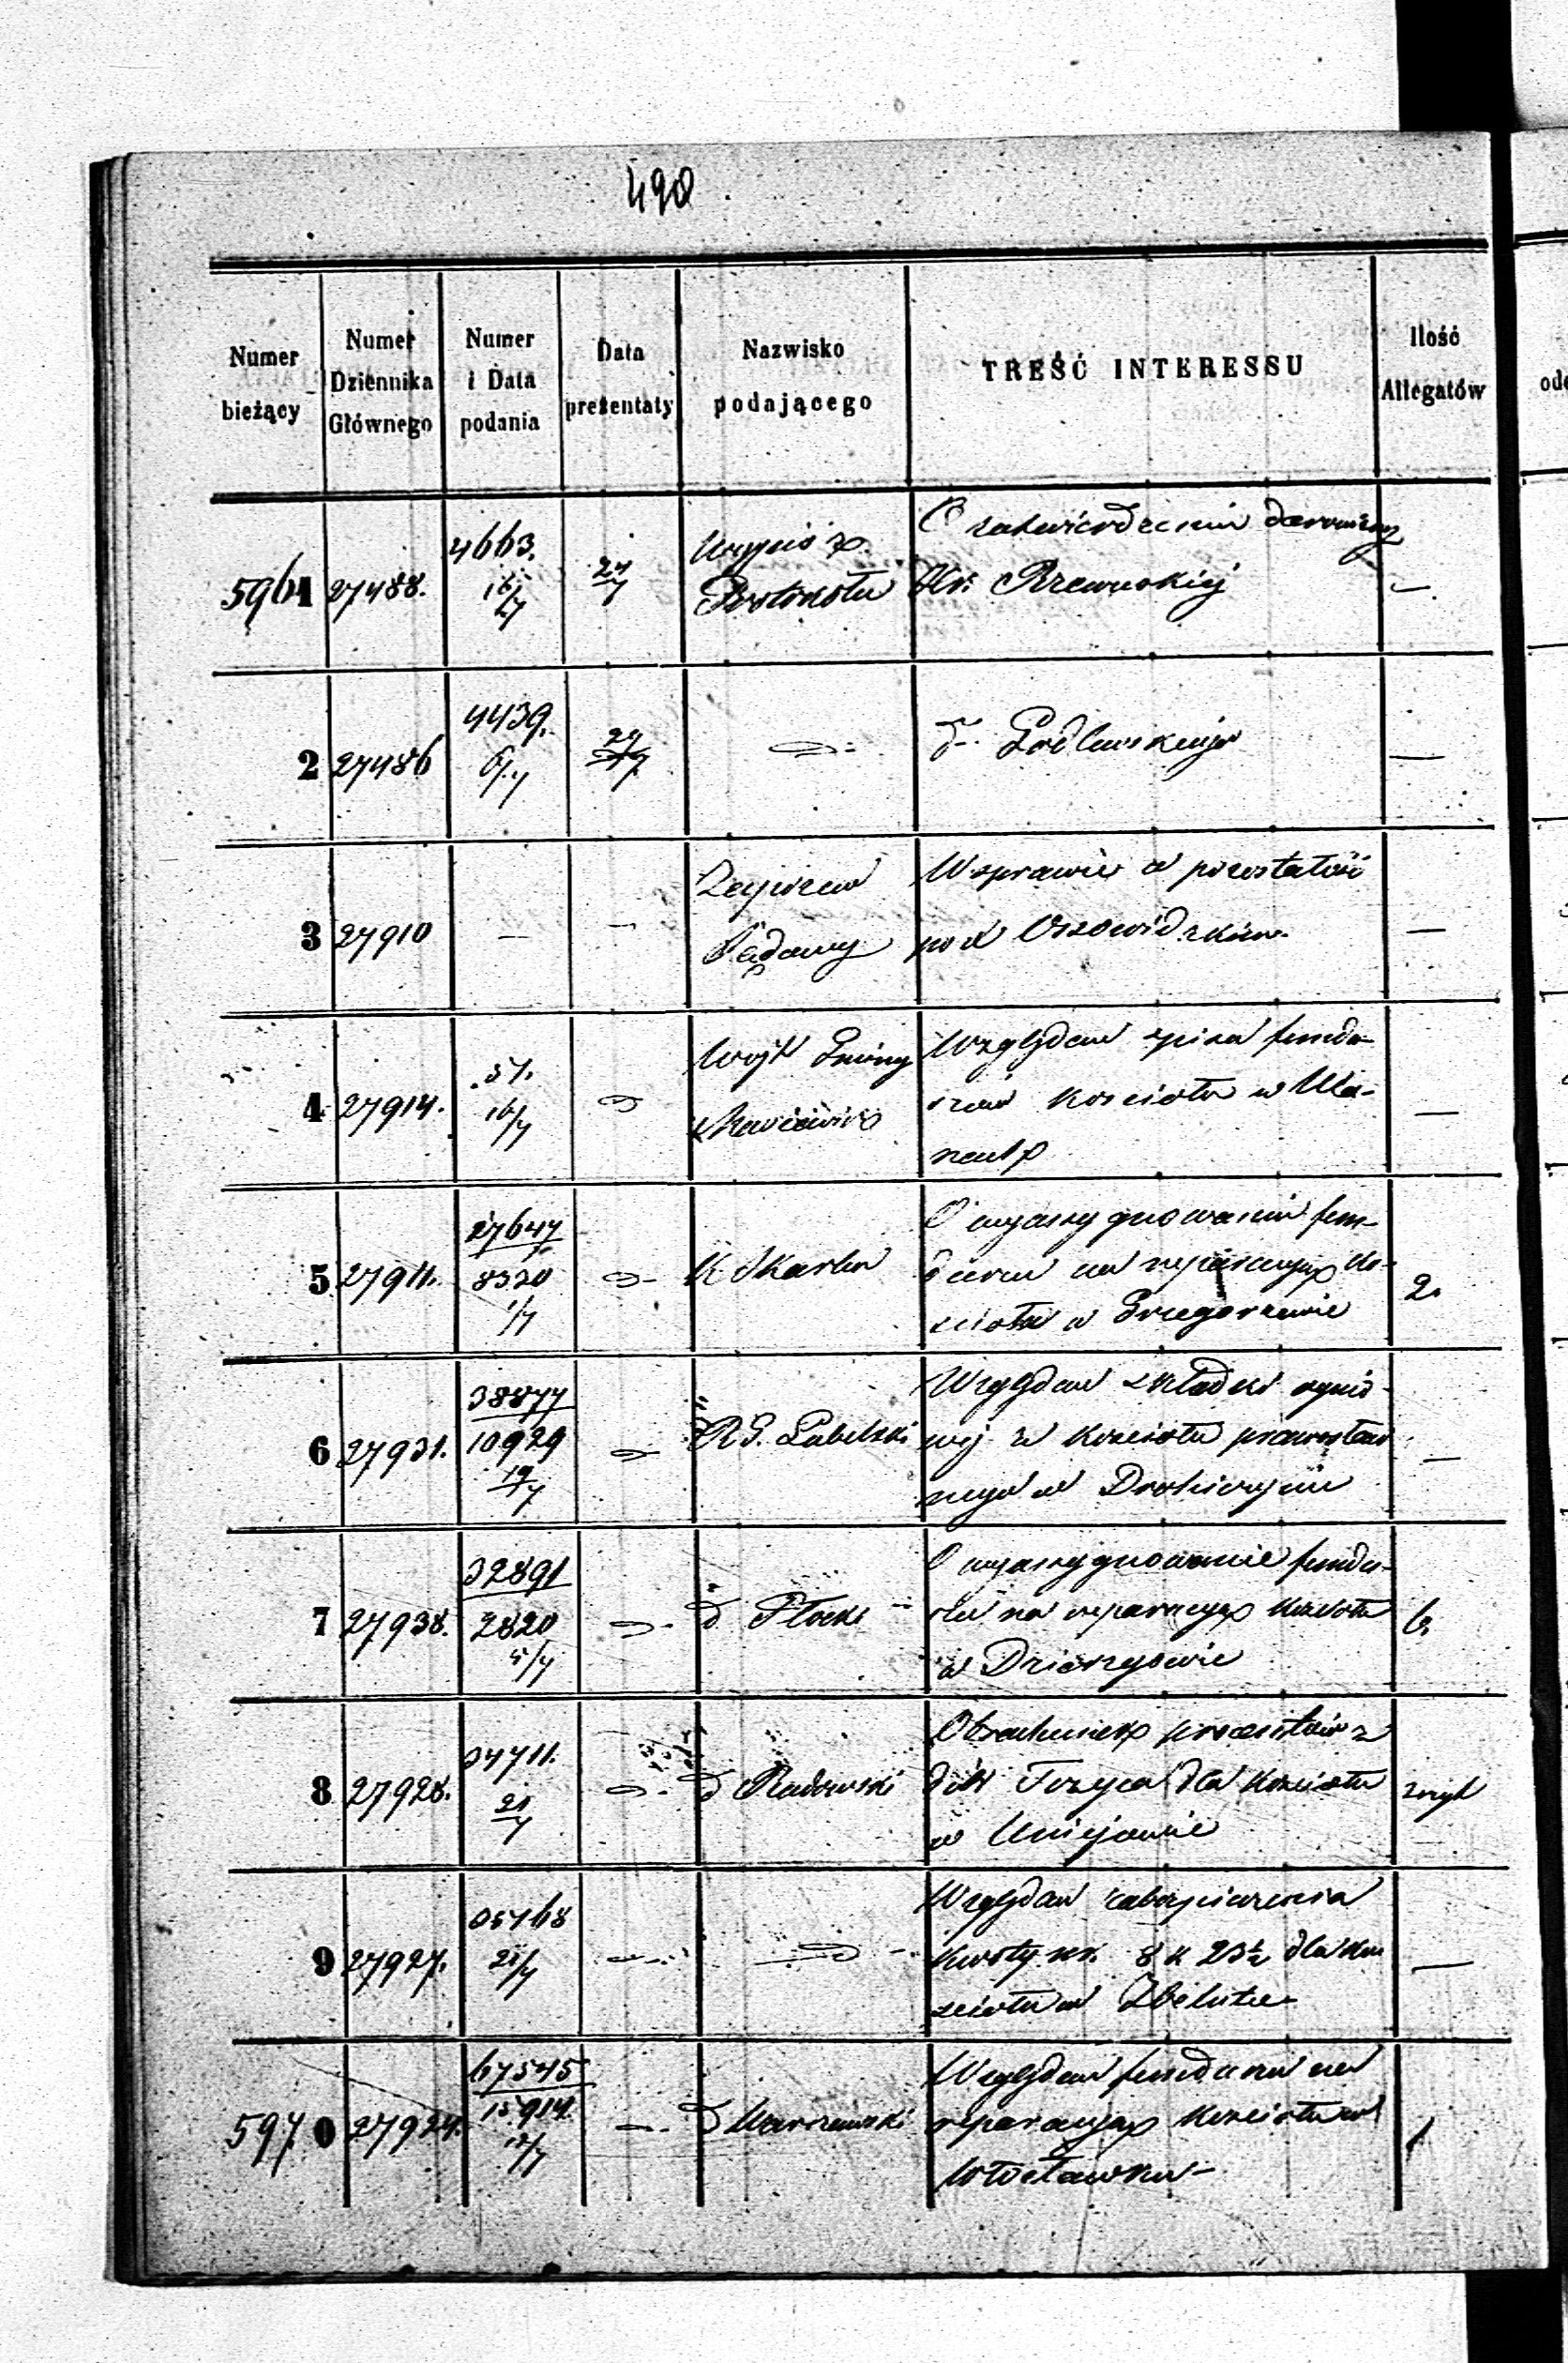 490
Numer bieżący
Numer Dziennika Głównego
Numer i Data podania
Data prezentaty
Nazwisko podającego
TREŚĆ INTERESSU
Ilość Allegatów
5961 27488. 4663. 24/7
Protokółu
O zatwierdzenie darowizny
Hr. Rzewuskiej
—
2 27486 4439. 6/7 29/7
—
3 27910 — —
W sprawie
pod
—
4 27914. 51. 16/7
Wójt Gminy
Względem fundu-
szów kościoła w
—
5 27911. 27647
8320
1/7
K Skarbu
O wyassygnowanie fun-
duszu na reparacyę ko-
ścioła w Grzegorzewie
2.
6 27931. 38877
10929
19/7
RG. Lubelski
Względem składki ognio-
wej z kościoła prawosław
nego w Drohiczynie
—
7 27938. 32891
2820
5/7
d Płocki
O wyassygnowanie fundu-
szu na reparacyę kościoła
w Dzierzgowie
6.
8 27928. 34711.
21/7
d Radomski
Obrachunek procentów z
dóbr dla kościoła
w Uniejowie
9 27927. 35168
21/7
Względem zabezpieczenia
kwoty rs. 8 k 23½ dla ko
ścioła w Zbelutce
—
5970 27924. 67545
15914
12/7
d Warszawski
Względem funduszu na
reparacyę kościoła w
Włocławku
1